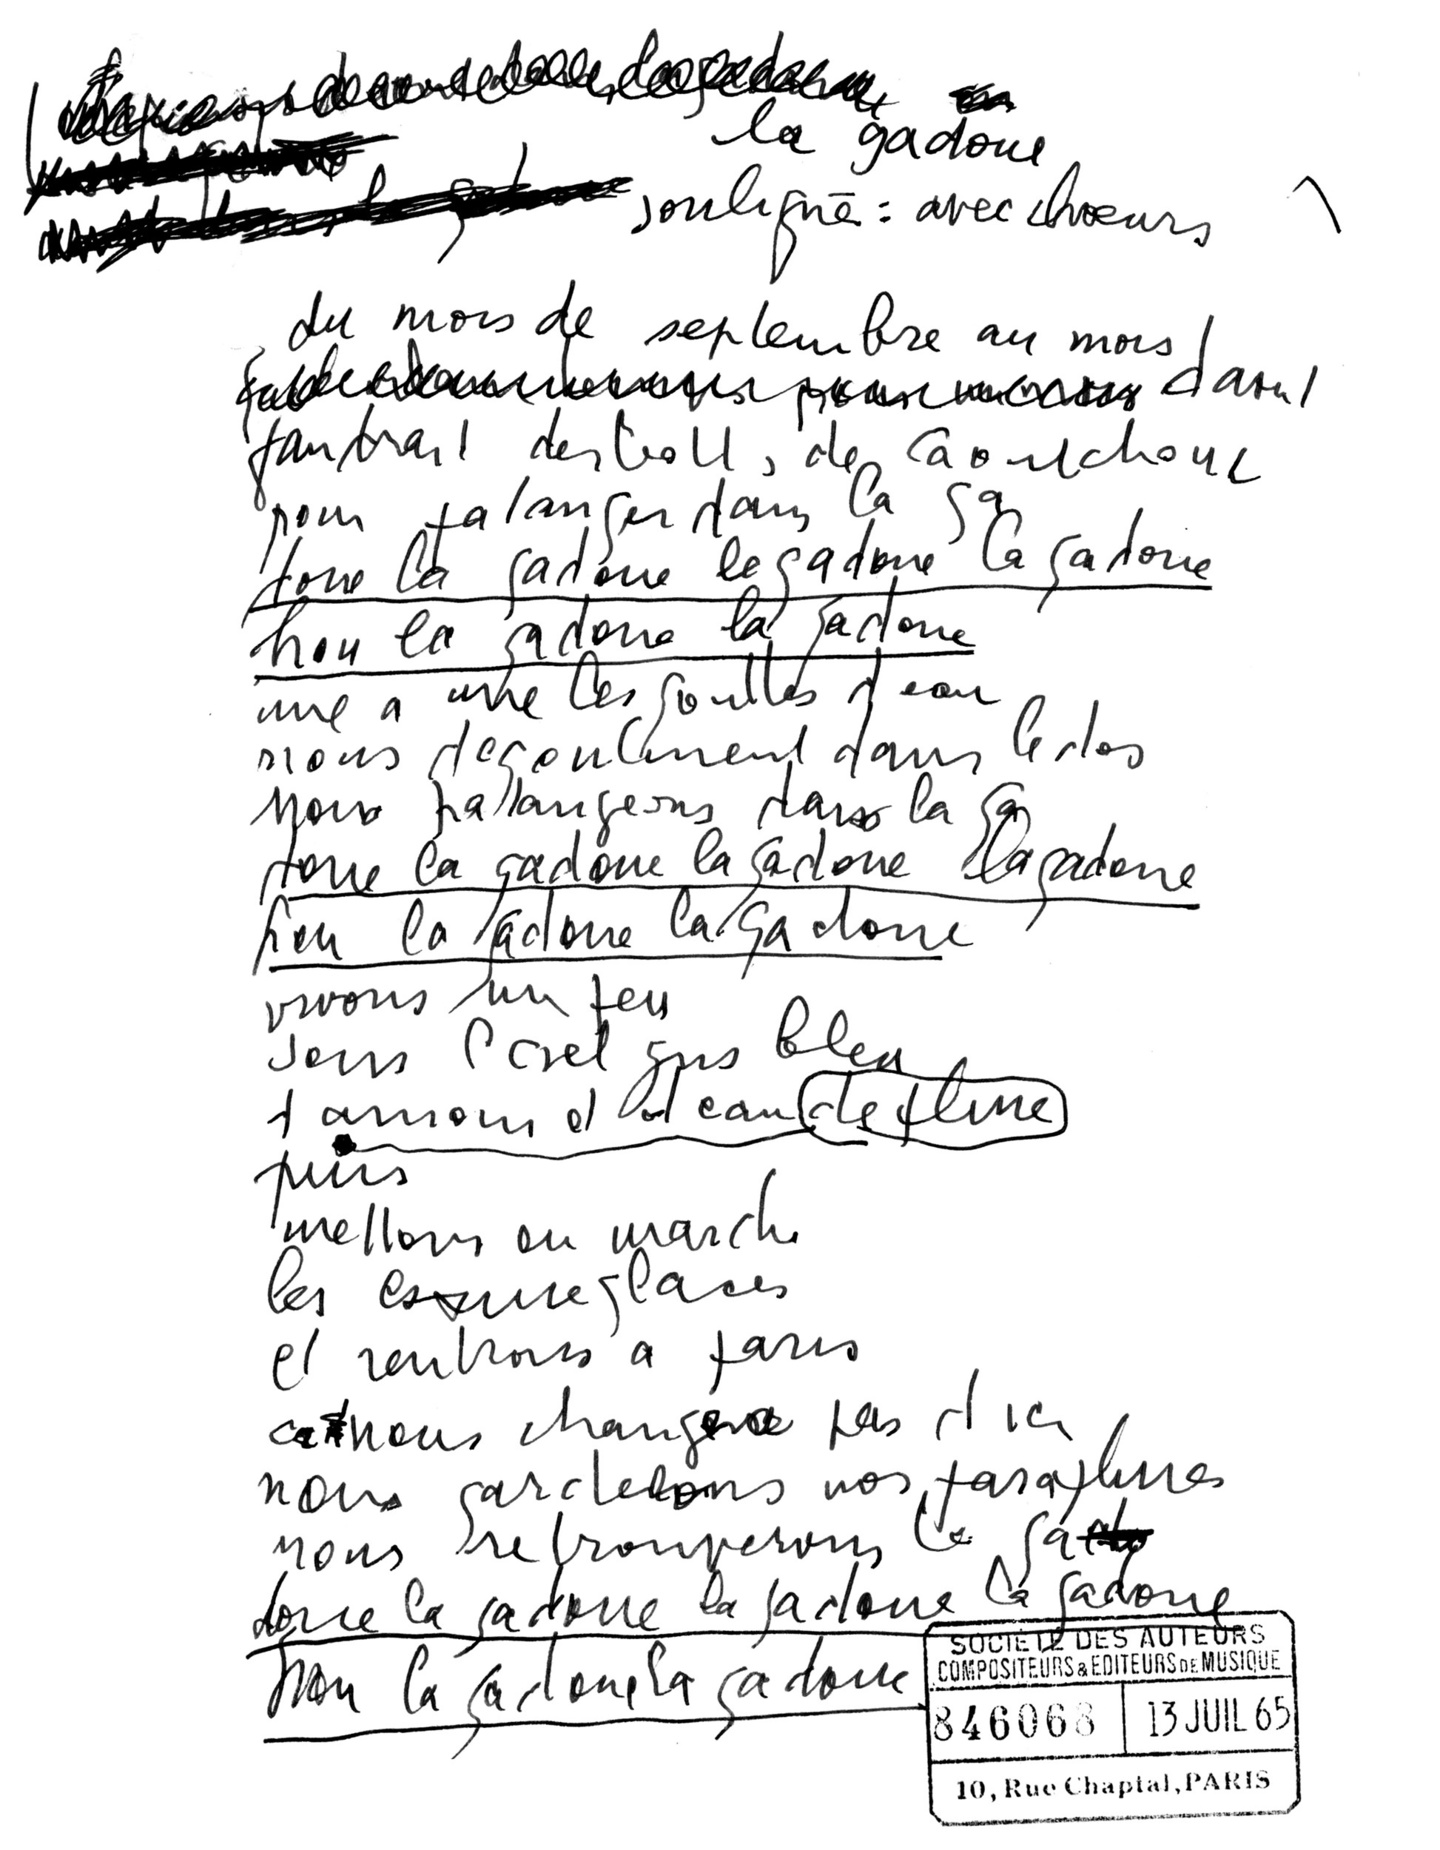 la gadoue
souligné : avec chœurs
du mois de septembre au mois
d'aout
faudrait des bott, de caoutchouc
pour patauger dans la ga
doue la gadoue la gadoue la gadoue
hou la gadoue la gadoue
une a une les gouttes d'eau
nous degoulinent dans le dos
nous pataugeons dans la ga
doue la gadoue la gadoue la gadoue
hou la gadoue la gadoue
vivons un peu
sous l'ciel gris bleu
d'amour et d'eau de pluie
puis
mettons en marche
les essuie glaces
et rentrons a paris
ca nous changera pas d'ici
nous garderons nos parapluies
nous retrouverons la ga
doue la gadoue la gadoue la gadoue
hou la gadoue la gadoue
SOCIÉTÉ DES AUTEURS
COMPOSITEURS & EDITEURS DE MUSIQUE
846068 13 JUIL 65
10, Rue Chaptal, PARIS